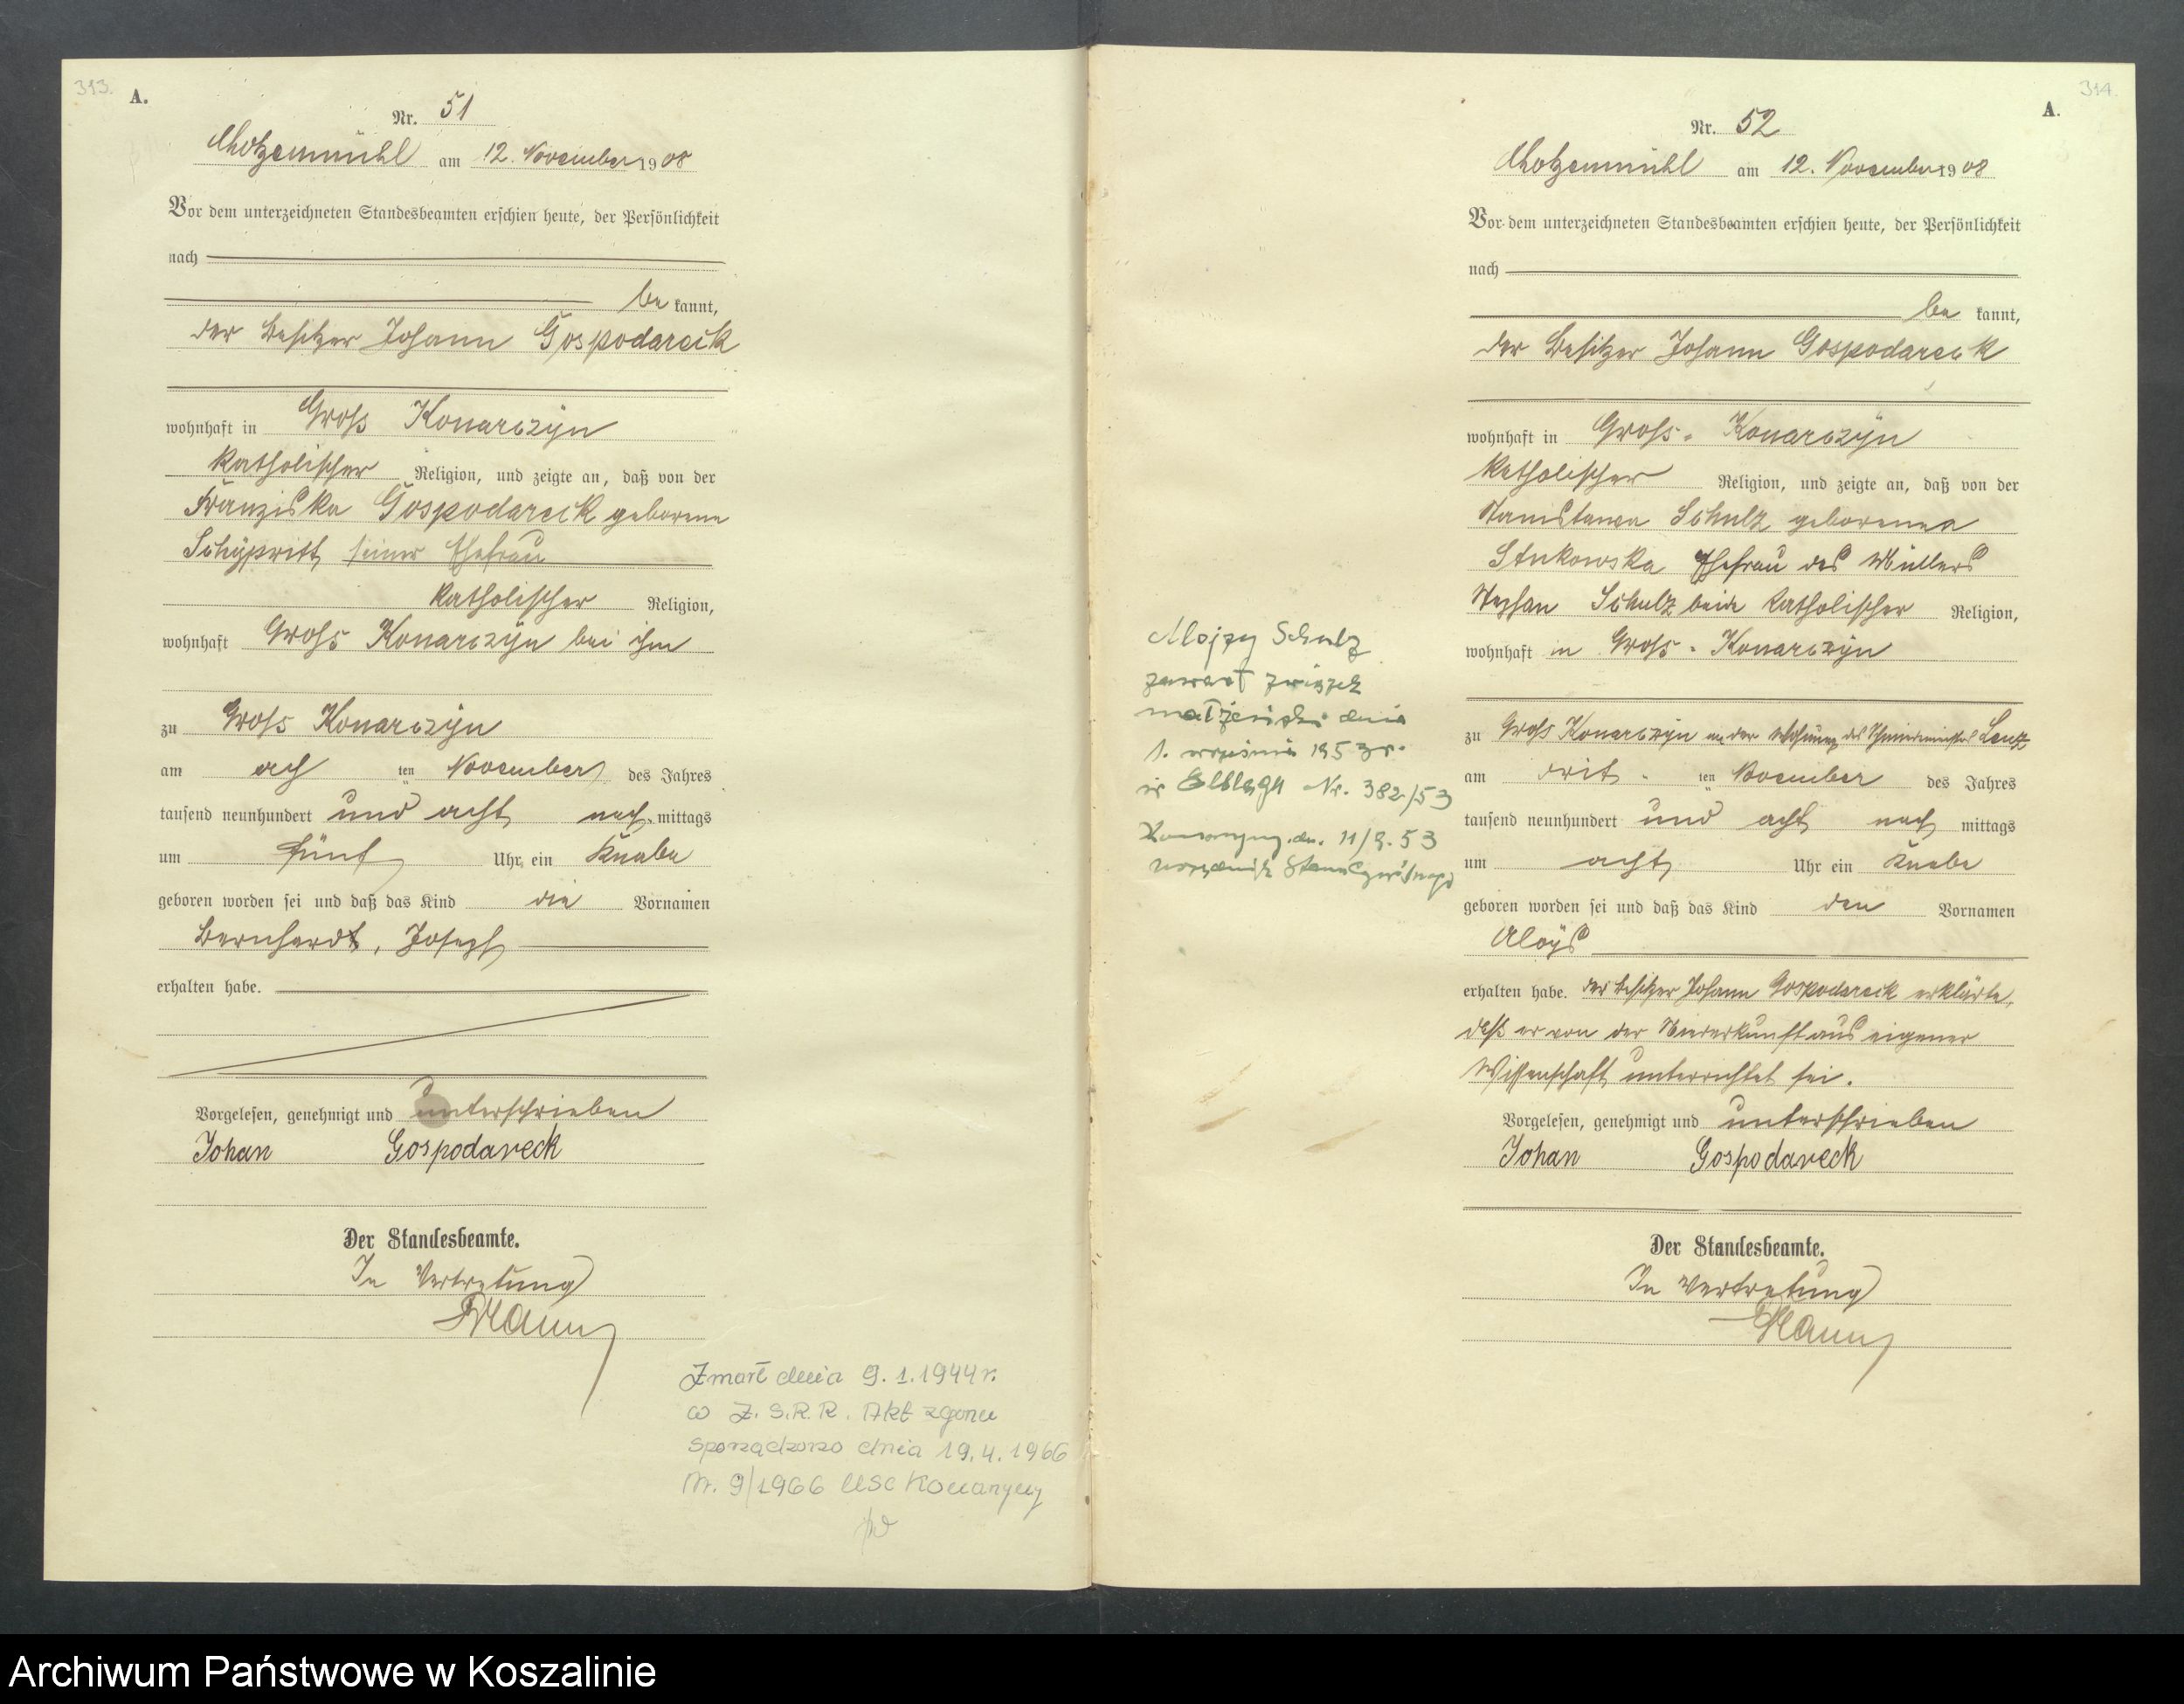 313.
A.
Nr. 51
Chotzenmühl am 12. November 1908
Vor dem unterzeichneten Standesbeamten erschien heute, der Persönlichkeit
nach
be kannt,
der Besitzer Johann Gospodareck
wohnhaft in Gross Konarczyn
katholischer Religion, und zeigte an, daß von der
Franziska Gospodareck geborene
seiner Ehefrau
katholischer Religion,
wohnhaft Gross Konarczyn bei ihm
zu Gross Konarczyn
am ach ten November des Jahres
tausend neunhundert und acht nach mittags
um fünf Uhr ein Knabe
geboren worden sei und daß das Kind die Vornamen
Bernhardt, Joseph
erhalten habe.
Vorgelesen, genehmigt und unterschrieben
Johan Gospodareck
Der Standesbeamte.
In Vertretung
Zmarł dnia 9.1.1944 r.
w Z.S.R.R. Akt zgonu
sporządzono dnia 19.4.1966
Nr. 9/1966 USC Konarzyny
314.
A.
Nr. 52
Chotzenmühl am 12. November 1908
Vor dem unterzeichneten Standesbeamten erschien heute, der Persönlichkeit
nach
be kannt,
der Besitzer Johann Gospodareck
wohnhaft in Gross-Konarczyn
katholischer Religion, und zeigte an, daß von der
Schulz geborenen
Ehefrau des Müllers
Stephan Schulz beide katholischer Religion,
wohnhaft in Gross-Konarczyn
zu Gross Konarczyn in der Wohnung des Lenz
am drit- ten November des Jahres
tausend neunhundert und acht nach mittags
um acht Uhr ein Knabe
geboren worden sei und daß das Kind den Vornamen
Aloys
erhalten habe. Der Besitzer Johann Gospodareck erklärte,
daß er von der Niederkunft aus eigener
Wissenschaft unterrichtet sei.
Vorgelesen, genehmigt und unterschrieben
Johan Gospodareck
Der Standesbeamte.
In Vertretung
Alojzy Schulz
zawarł związek
małżeński dnia
1. września 1953 r.
w Elblągu Nr. 382/53
Konarzyny, dn. 11/9.53
urzędnik Stanu Cywilnego
Archiwum Państwowe w Koszalinie